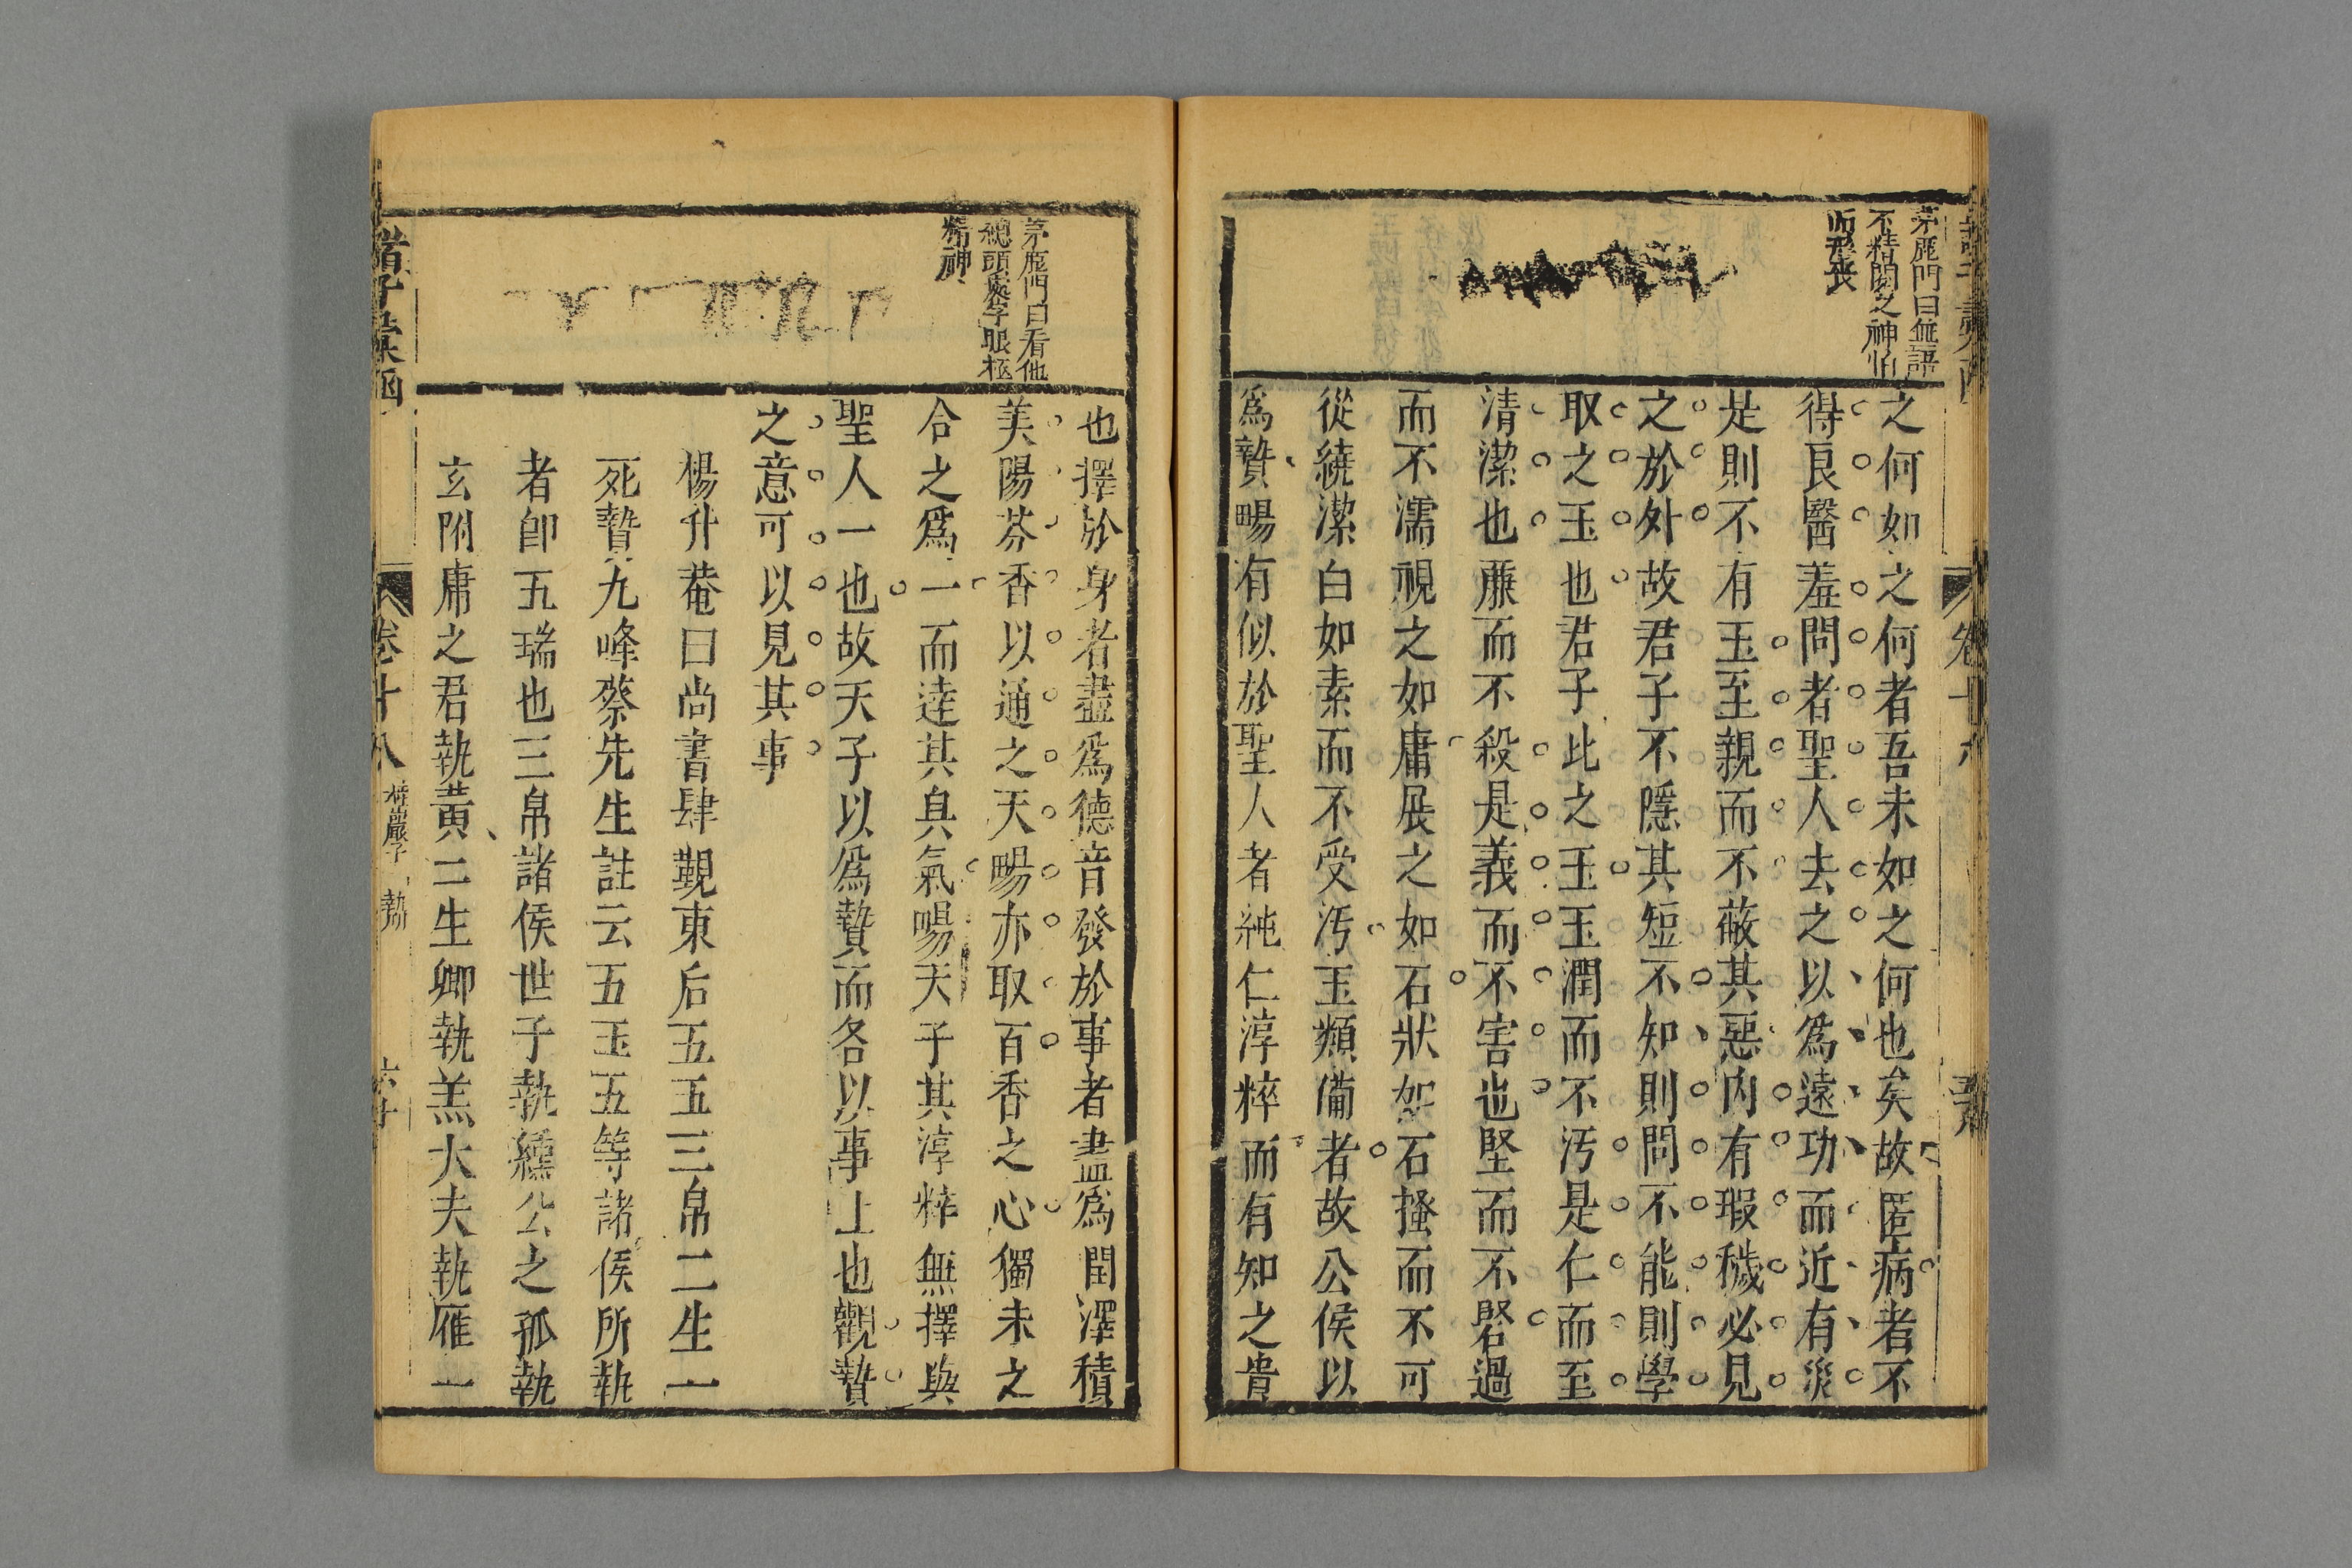 茅鹿門曰無語
不精閱之神怕
而形丧
之何如之何者吾未如之何也矣故匿病者不
得良醫羞問者聖人去之以為遠功而近有災
是則不有玉至親而不蔽其惡內有瑕穢必見
之於外故君子不隱其短不知則問不能則學
取之玉也君子比之玉玉潤而不汚是仁而至
清潔也廉而不殺是義而不害也堅而不磬過
而不濡視之如庸展之如石狀如石搔而不可
從繞潔白如素而不受汚玉類備者故公侯以
為贄暢有似於聖人者純仁淳粹而有知之貴
茅鹿門曰看他
總頭處字眼極
精神
也擇於身者盡為德音發於事者盡為閏澤積
美陽芬香以通之天暢亦取百香之心獨末之
合之為一而達其臭氣暢天子其淳粹無擇與
聖人一也故天子以為贄而各以事上也觀贄
之意可以見其事
楊升菴曰尚書肆覲東后五玉三帛二生一
死贄九峰蔡先生註云五玉五等諸侯所執
者卽五瑞也三帛諸侯世子執纁公之孤執
玄附庸之君執黃二生卿執羔大夫執雁一
諸子彙函
卷十八
桂巖子
執
六十